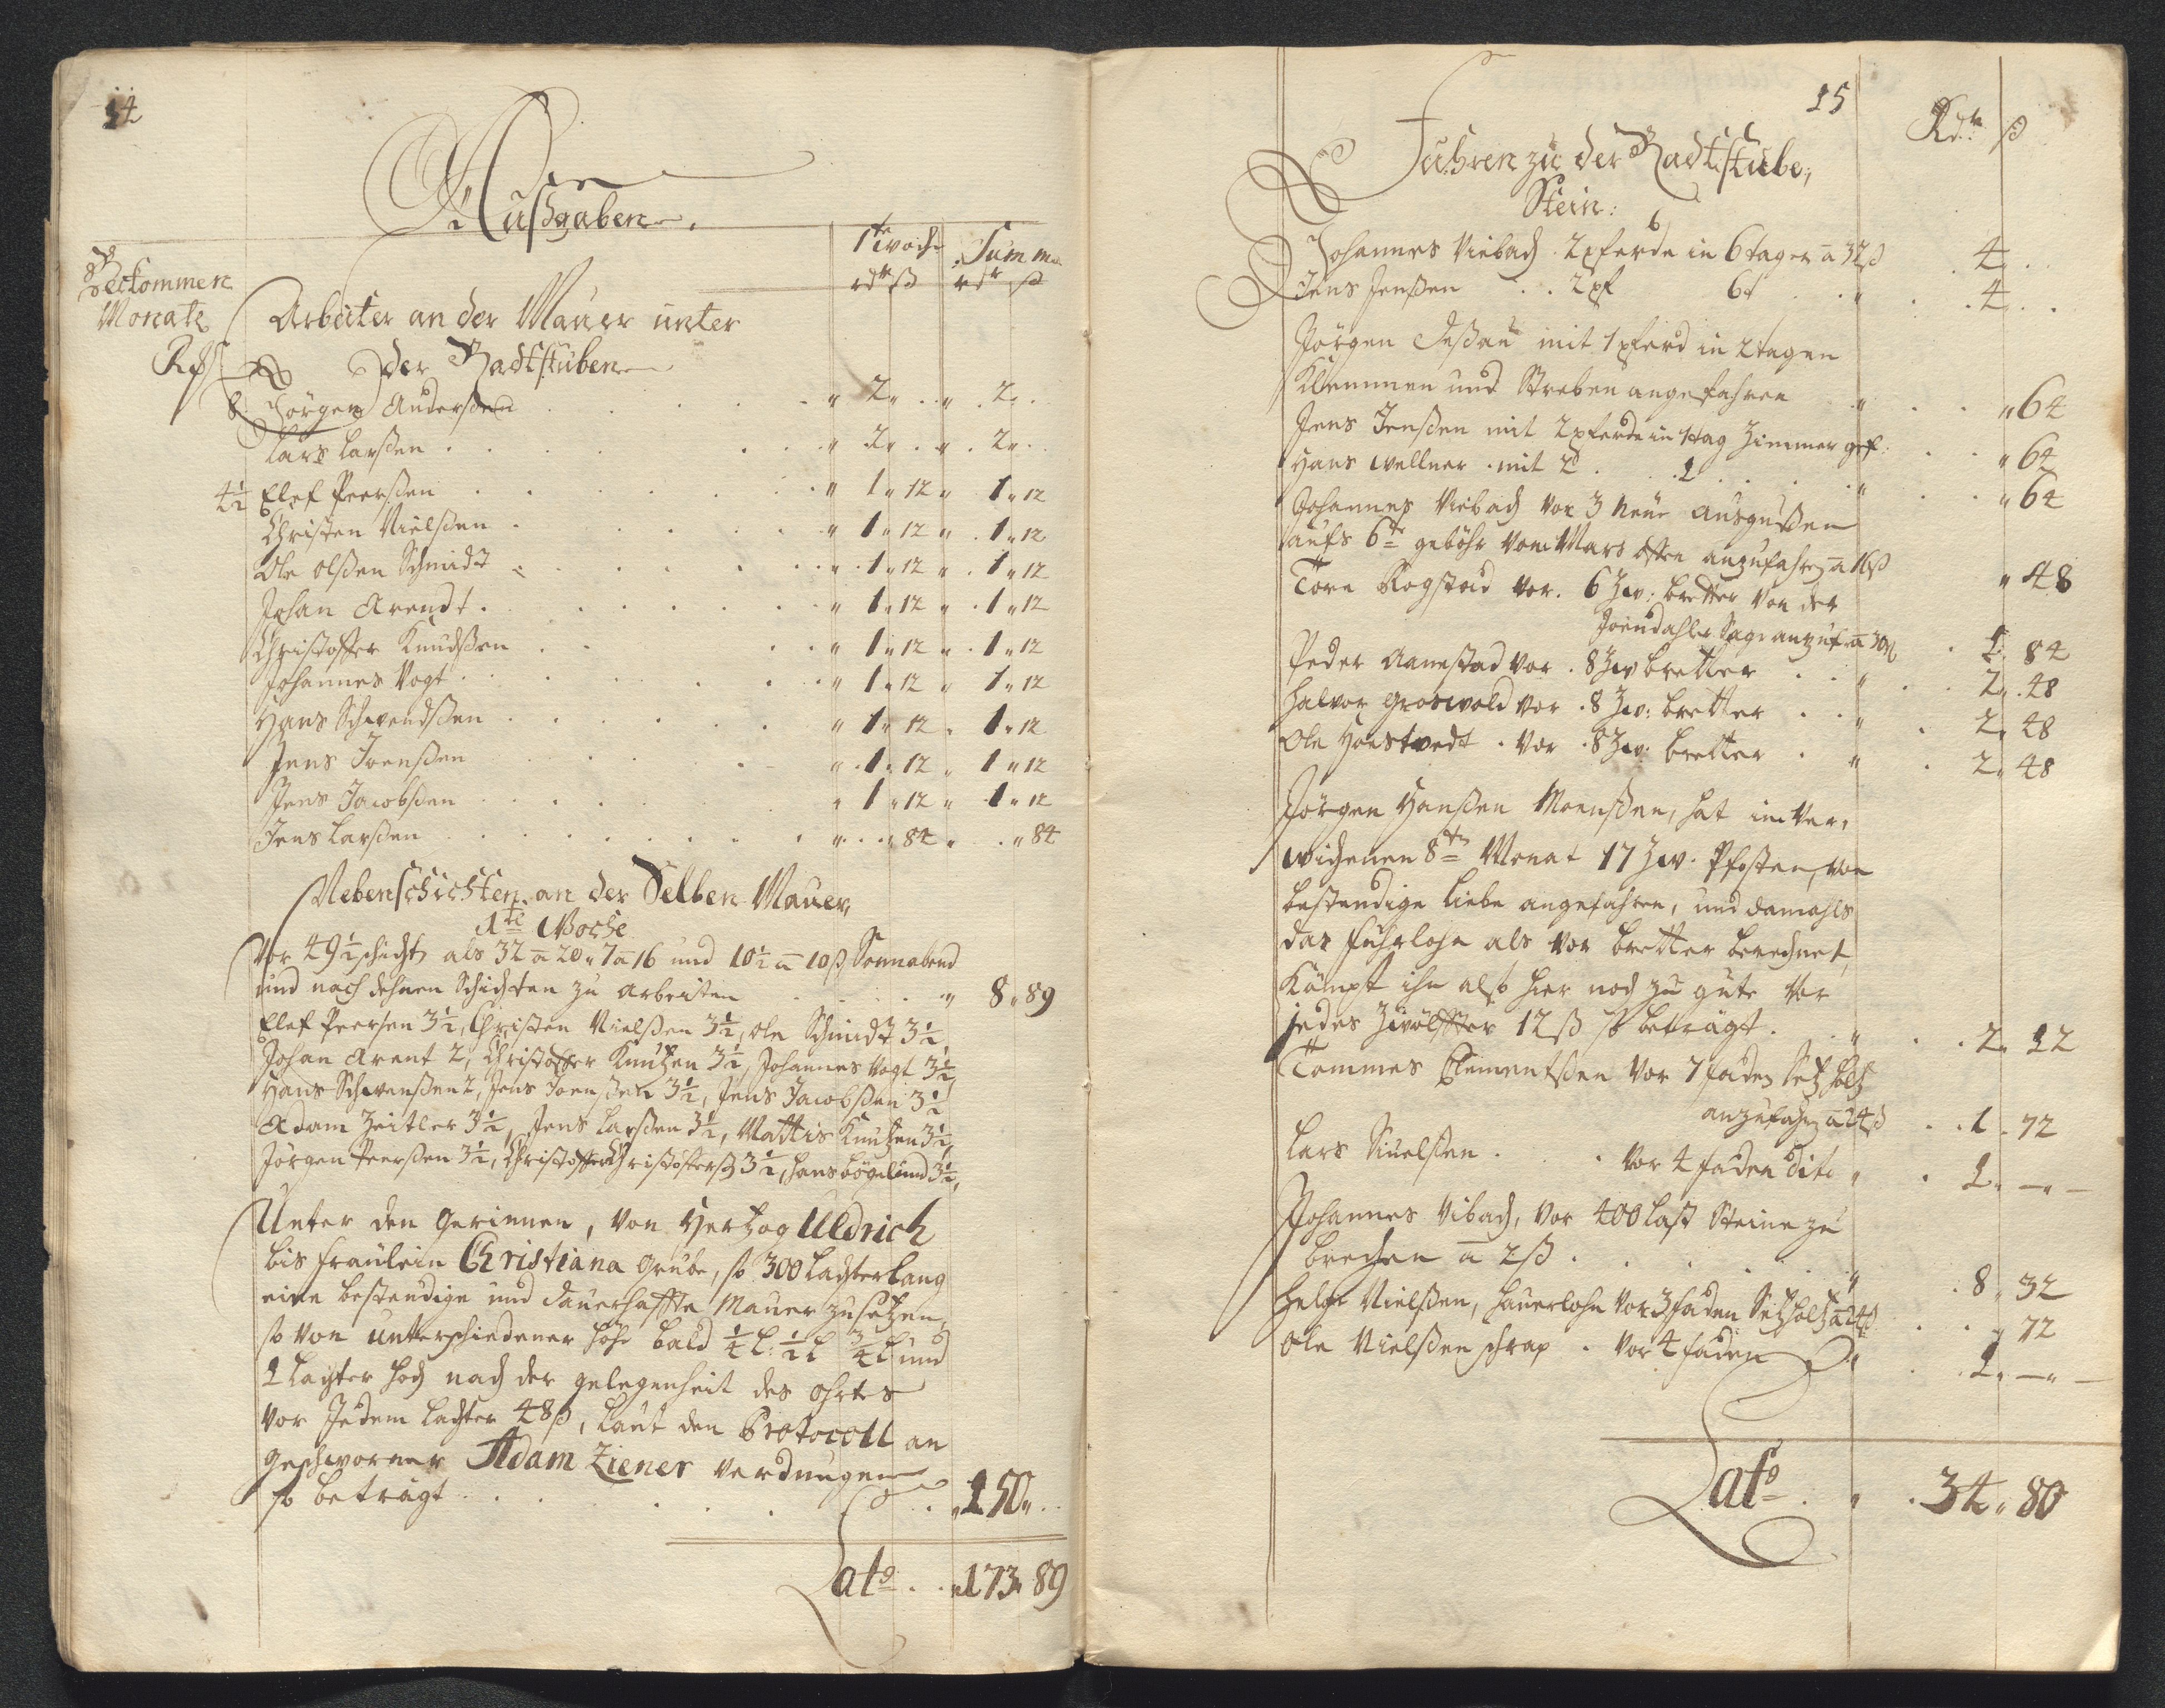 14
Die
Außgaben.
1te Woche Summa
rdr ß rdr ß
Bekommen
Monath
Arbeiter an der Mauer unter
der Radtstuben
8. Jörgen Anderßen " 2 " . . " 2 " . .
Lars Larßen " 2 " . . " 2 " . .
4½ Elef Peerßen " 1 " 12 " 1 " 12
Christen Nielßen " 1 " 12 " 1 " 12
Ole Olßen Schmidt " 1 " 12 " 1 " 12
Johan Arendt " 1 " 12 " 1 " 12
Christoffer Knudßen " 1 " 12 " 1 " 12
Johannes Vogt " 1 " 12 " 1 " 12
Hans Schwendßen " 1 " 12 " 1 " 12
Jens Joenßen " 1 " 12 " 1 " 12
Jens Jacobßen " 1 " 12 " 1 " 12
Jens Larßen " . . " 84 " . . " 84
Nebenschichten an der Selben Mauer,
1te Woche
Vor 49½ schicht als 32 a 20 " 7 a 16 und 10½ a 10 ß Sonnabend
und nach dehnen Schichten zu arbeiten " 8 " 89
Elef Peersen 3½, Christen Nielßen 3½, Ole Schmidt 3½
Johan Arent 2, Christoffer Knutzen 3½, Johannes Vogt 3½,
Hans Schwenßen 2, Jens Joenßen 3½, Jens Jacobßen 3½
Adam Zeitler 3½, Jens Larßen 3½, Mattis Knutzen 3½,
Jörgen Peerßen 3½, Christoffer Christoffersß 3½, Hans bögelund 3½,
Unter den Gerinnen, von Hertzog Uldrich
bis Fraülein Christiana Grube, so 300 Lachter lang
eine bestendige und dauerhaffte Mauer zu setzen,
so von unterschiedener Höhe bald ¼ L: ½ L ¾ L und
1 Lachter hoch nach der gelegenheit des ohrtes
vor Jedem Lachter 48 ß, laut den Protocoll an
geschworner Adam Ziener verdungen
so beträgt " 150 " . .
Lato . . " 173 " 89
15
Rdr ß
Fuhren zu der Radtstube,
Stein:
Johannes Viebach 2 pferde in 6 tagen a 32 ß 4 . .
Jens Jenßen . . 2 pf 6 t " 4 . .
Jörgen Deßau mit 1 pferd in 2 tagen
Klemmen und Streben angefahren " " 64
Jens Jenßen mit 2 pferde in 1 tag Zimmer gef. " 64
Hans Wellner . mit 2 . . 1 " " 64
Johannes Viebach vor 3 neue ausgußen
aufs 6te geböhr vom Mars offen anzufahren a 16 ß " 48
Tore Rogstad vor . 6 Zw: bretter von der
Joendahler Sage anzuf. a 30 ß 1 " 84
Peder Aamestad vor . 8 Zw bretter " 2 " 48
Halvor Groswold vor . 8 Zw: bretter " 2 " 48
Ole Hoestvedt . vor . 8 Zw: bretter " 2 " 48
Jörgen Hanßen Moenßen, hat im Ver,
wichenen 8ten Monat 17 Zw. Pfosten, von
bestendige Liebe angefahren, und damahls
das Fuhrlohn als vor bretter berechnet,
Kömpt ihn also hier noch zu gute vor
jedes Zwölffter 12 ß so beträgt " 2 " 12
Tommes Clementßen vor 7 faden Setzholtz
anzufahren a 24 ß 1 " 72
Lars Niuelßen . . vor 4 faden dito " 1 " — " —
Johannes Vibach, vor 400 last Steine zu
brechen a 2 ß " 8 " 32
Helge Nielßen, hauerlohn vor 3 faden Setzholtz a 24 ß " 72
Ole Nielßen schrap . vor 4 faden " 1 " — " —
Lato . " 34 " 80